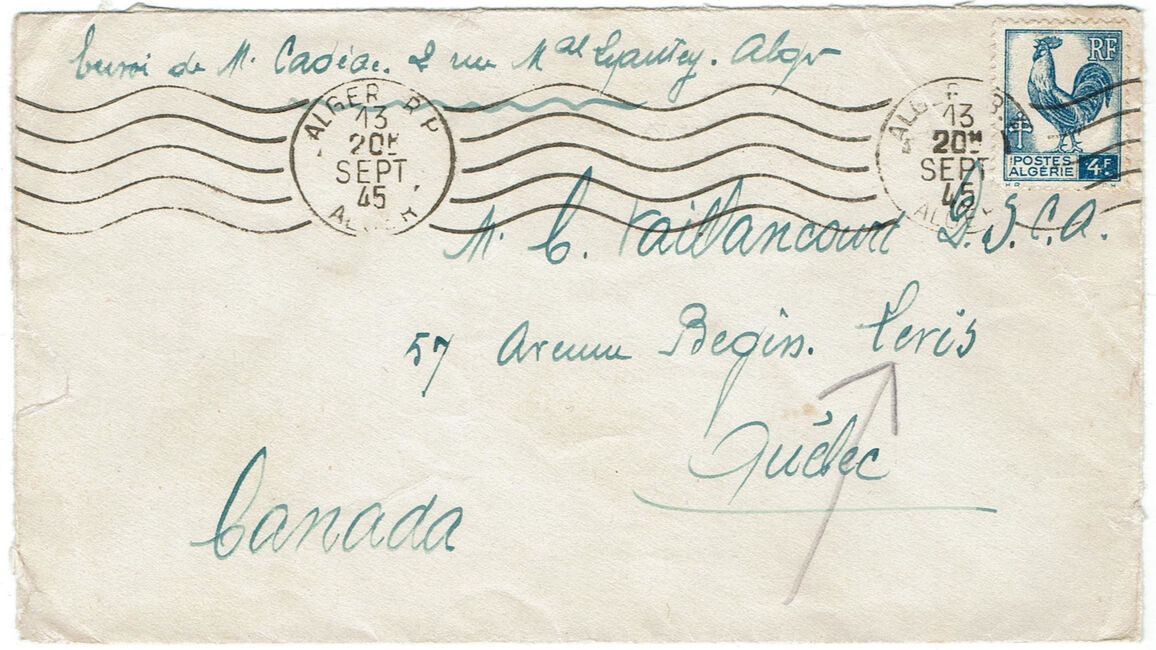 Envoi de M. Cadéac. 2 rue Mal Lyautey. Alger
ALGER R.P.
13
20H
SEPT.
45
ALGER
ALGER R.P.
13
20H
SEPT.
45
ALGER
RF
POSTES
ALGERIE
4F
M. C. Vaillancourt D.S.C.A.
57 Avenue Begin. Levis
Québec
Canada